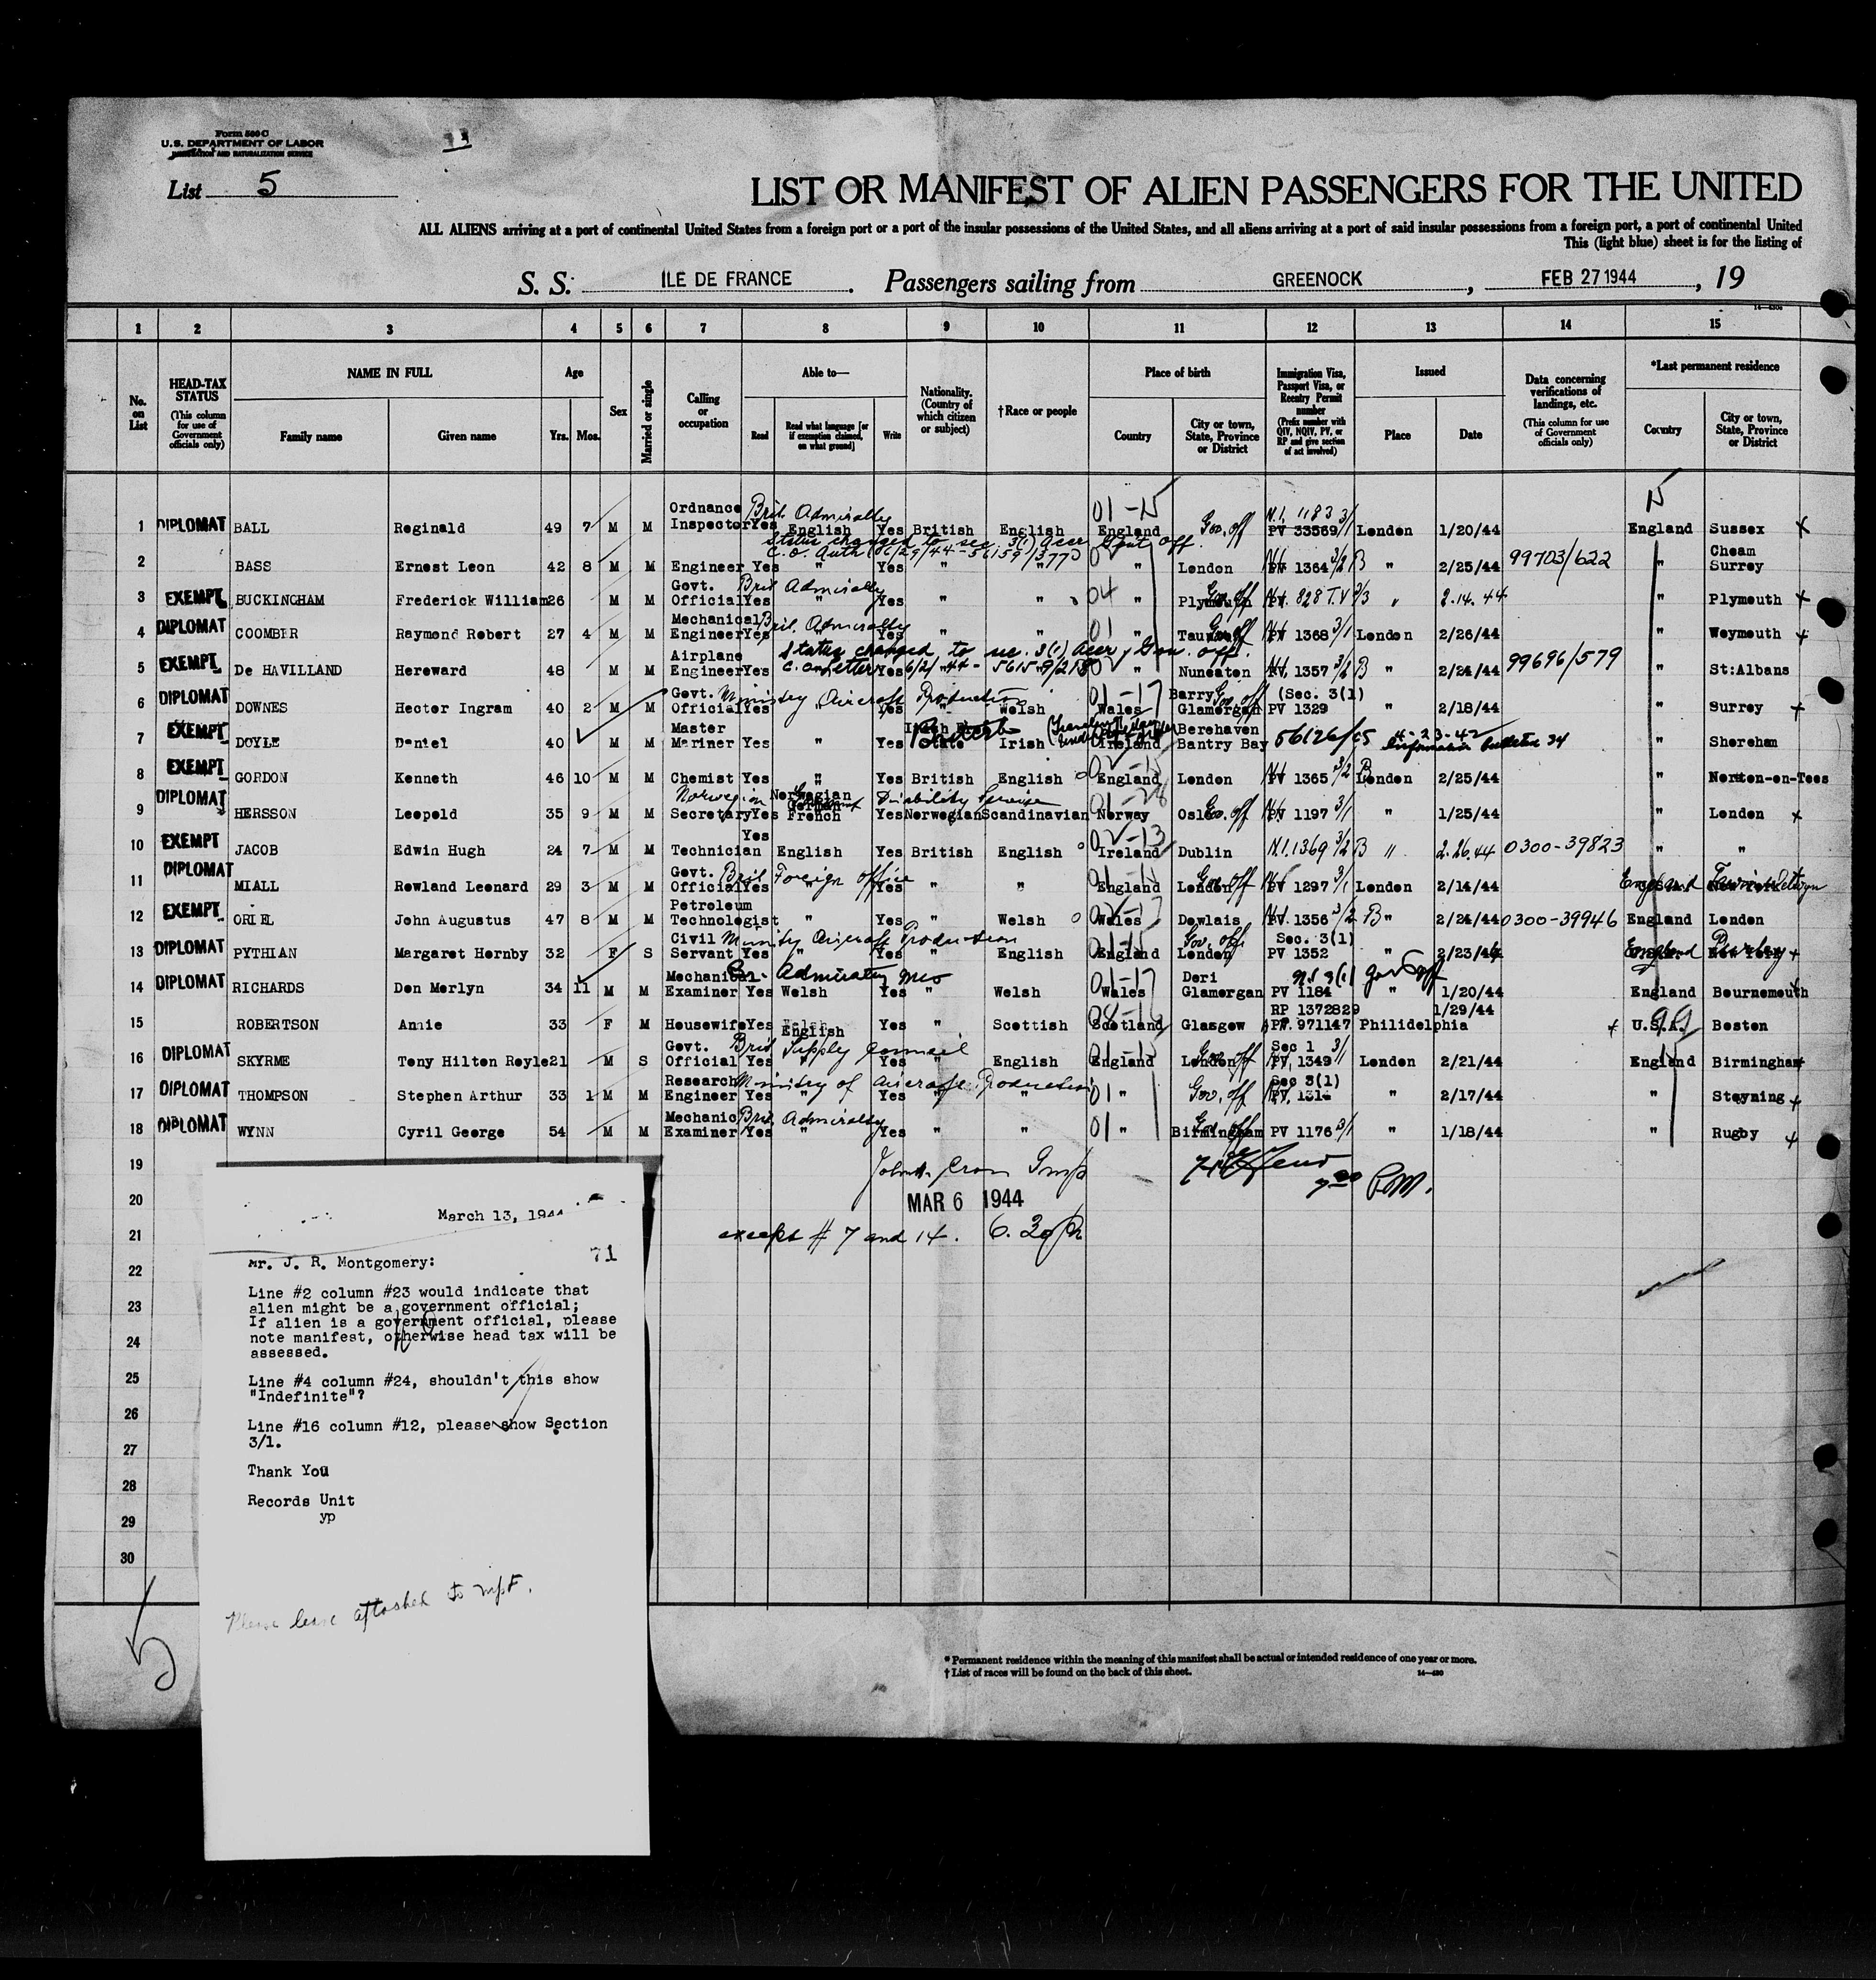 Form 500 C
U.S. DEPARTMENT OF LABOR
IMMIGRATION AND NATURALIZATION SERVICE
11
List 5
LIST OR MANIFEST OF ALIEN PASSENGERS FOR THE UNITED
ALL ALIENS arriving at a port of continental United States from a foreign port or a port of the insular possessions of the United States, and all aliens arriving at a port of said insular possessions from a foreign port, a port of continental United
This (light blue) sheet is for the listing of
S. S. ILE DE FRANCE . Passengers sailing from GREENOCK , FEB 27 1944 , 19
1 2 3 4 5 6 7 8 9 10 11 12 13 14 15
No. on List
HEAD-TAX STATUS (This column for use of Government officials only)
NAME IN FULL Family name Given name
Age Yrs. Mos.
Sex
Married or single
Calling or occupation
Able to— Read Read what language [or if exemption claimed, on what ground] Write
Nationality. (Country of which citizen or subject)
†Race or people
Place of birth Country City or town, State, Province or District
Immigration Visa, Passport Visa, or Reentry Permit number (Prefix number with QIV, NQIV, PV, or RP and give section of act involved)
Issued Place Date
Data concerning verifications of landings, etc. (This column for use of Government officials only)
*Last permanent residence Country City or town, State, Province or District
1 DIPLOMAT BALL Reginald 49 7 M M Ordnance Inspector Yes Brit. Admiralty English Yes British English 01-15 England Gov. off N.I. 1183 3/1 PV 33569 London 1/20/44 15 England Sussex X
status changed to sec 3(1) accr Govt off.
C.O. Auth (6/29/44 - 56159/377)
2 BASS Ernest Leon 42 8 M M Engineer Yes " Yes " " " London PV 1364 3/2 B " 2/25/44 99703/622 " Cheam Surrey
3 EXEMPT BUCKINGHAM Frederick William 26 M M Govt. Official Yes Brit Admiralty Yes " " 04 " Plymouth Gov off PV. 828 T.V 3/3 " 2.14.44 " Plymouth X
4 DIPLOMAT COOMBER Raymond Robert 27 4 M M Mechanical Engineer Yes Brit. Admiralty " Yes " " 01 " Gov off PV 1368 3/1 London 2/26/44 " Weymouth X
status changed to sec. 3(1) accr Gov. off.
5 EXEMPT De HAVILLAND Hereward 48 M M Airplane Engineer Yes C.O. letter Yes 6/2/44 - 56159/218 " Nuneaton PV 1357 3/2 B " 2/24/44 99696/579 " St:Albans
6 DIPLOMAT DOWNES Hector Ingram 40 2 M M Govt. Official Yes Ministry Aircraft Production " Yes " Welsh 01-17 Wales Barry Glamorgan Gov off (Sec. 3(1) PV 1329 " 2/18/44 " Surrey X
7 EXEMPT DOYLE Daniel 40 M M Master Mariner Yes " Yes Irish State British Irish Ireland Berehaven Bantry Bay 56126/65 4-23-42 Information Bulletin 34 " Shoreham
8 EXEMPT GORDON Kenneth 46 10 M M Chemist Yes " Yes British English 02-15 England London PV 1365 3/2 B London 2/25/44 " Norton-on-Tees
9 DIPLOMAT HERSSON Leopold 35 9 M M Secretary Yes Norwegian Norwegian German French Yes Norwegian Scandinavian Norway Gov. off PV 1197 3/1 " 1/25/44 " London X
10 EXEMPT JACOB Edwin Hugh 24 7 M M Technician Yes English Yes British English 02-13 Ireland Dublin N.I. 1369 3/2 B " 2.26.44 0300-39823 " "
11 DIPLOMAT MIALL Rowland Leonard 29 3 M M Govt. Official Yes Brit Foreign Office " Yes " " England London Gov off PV 1297 3/1 London 2/14/44 England
12 EXEMPT ORIEL John Augustus 47 8 M M Petroleum Technologist " Yes " Welsh 02-17 Wales Dowlais PV. 1356 3/2 B " 2/24/44 0300-39946 England London
13 DIPLOMAT PYTHIAN Margaret Hornby 32 F S Civil Servant Yes Ministry Aircraft Production " Yes " English 01-15 England London Gov. off. Sec. 3(1) PV 1352 " 2/23/44 England Purley X
14 DIPLOMAT RICHARDS Don Merlyn 34 11 M M Mechanical Examiner Yes Admiralty Welsh Yes " Welsh 01-17 Wales Deri Glamorgan N.I. 3(1) Gov off PV 1184 " 1/20/44 England Bournemouth X
15 ROBERTSON Annie 33 F M Housewife Yes English Yes " Scottish 08-16 Scotland Glasgow RP 1372829 PV. 971147 Philidelphia 1/29/44 X U.S.A. 99 Boston
16 DIPLOMAT SKYRME Tony Hilton Royle 21 M S Govt. Official Yes Brit Supply Council " Yes " English 01-15 England London Gov off Sec 1 3/1 PV. 1349 London 2/21/44 England Birmingham X
17 DIPLOMAT THOMPSON Stephen Arthur 33 1 M M Research Engineer Yes Ministry of Aircraft Production " Yes " " 01 " Gov. off Sec 3(1) PV. 1314 " 2/17/44 " Steyning X
18 DIPLOMAT WYNN Cyril George 54 M M Mechanic Examiner Yes Brit. Admiralty " Yes " " 01 " Birmingham Gov off PV 1176 3/1 " 1/18/44 " Rugby X
19 Insp
20 MAR 6 1944 7 30 P.M.
21 except # 7 and 14. 6.30 P
22
23
24
25
26
27
28
29
30
March 13, 1944
71
Mr. J. R. Montgomery:
Line #2 column #23 would indicate that
alien might be a government official;
If alien is a government official, please
note manifest, otherwise head tax will be
assessed.
Line #4 column #24, shouldn't this show
"Indefinite"?
Line #16 column #12, please show Section
3/1.
Thank You
Records Unit
yp
Please leave attached to mpf.
5
* Permanent residence within the meaning of this manifest shall be actual or intended residence of one year or more.
† List of races will be found on the back of this sheet.
14—430